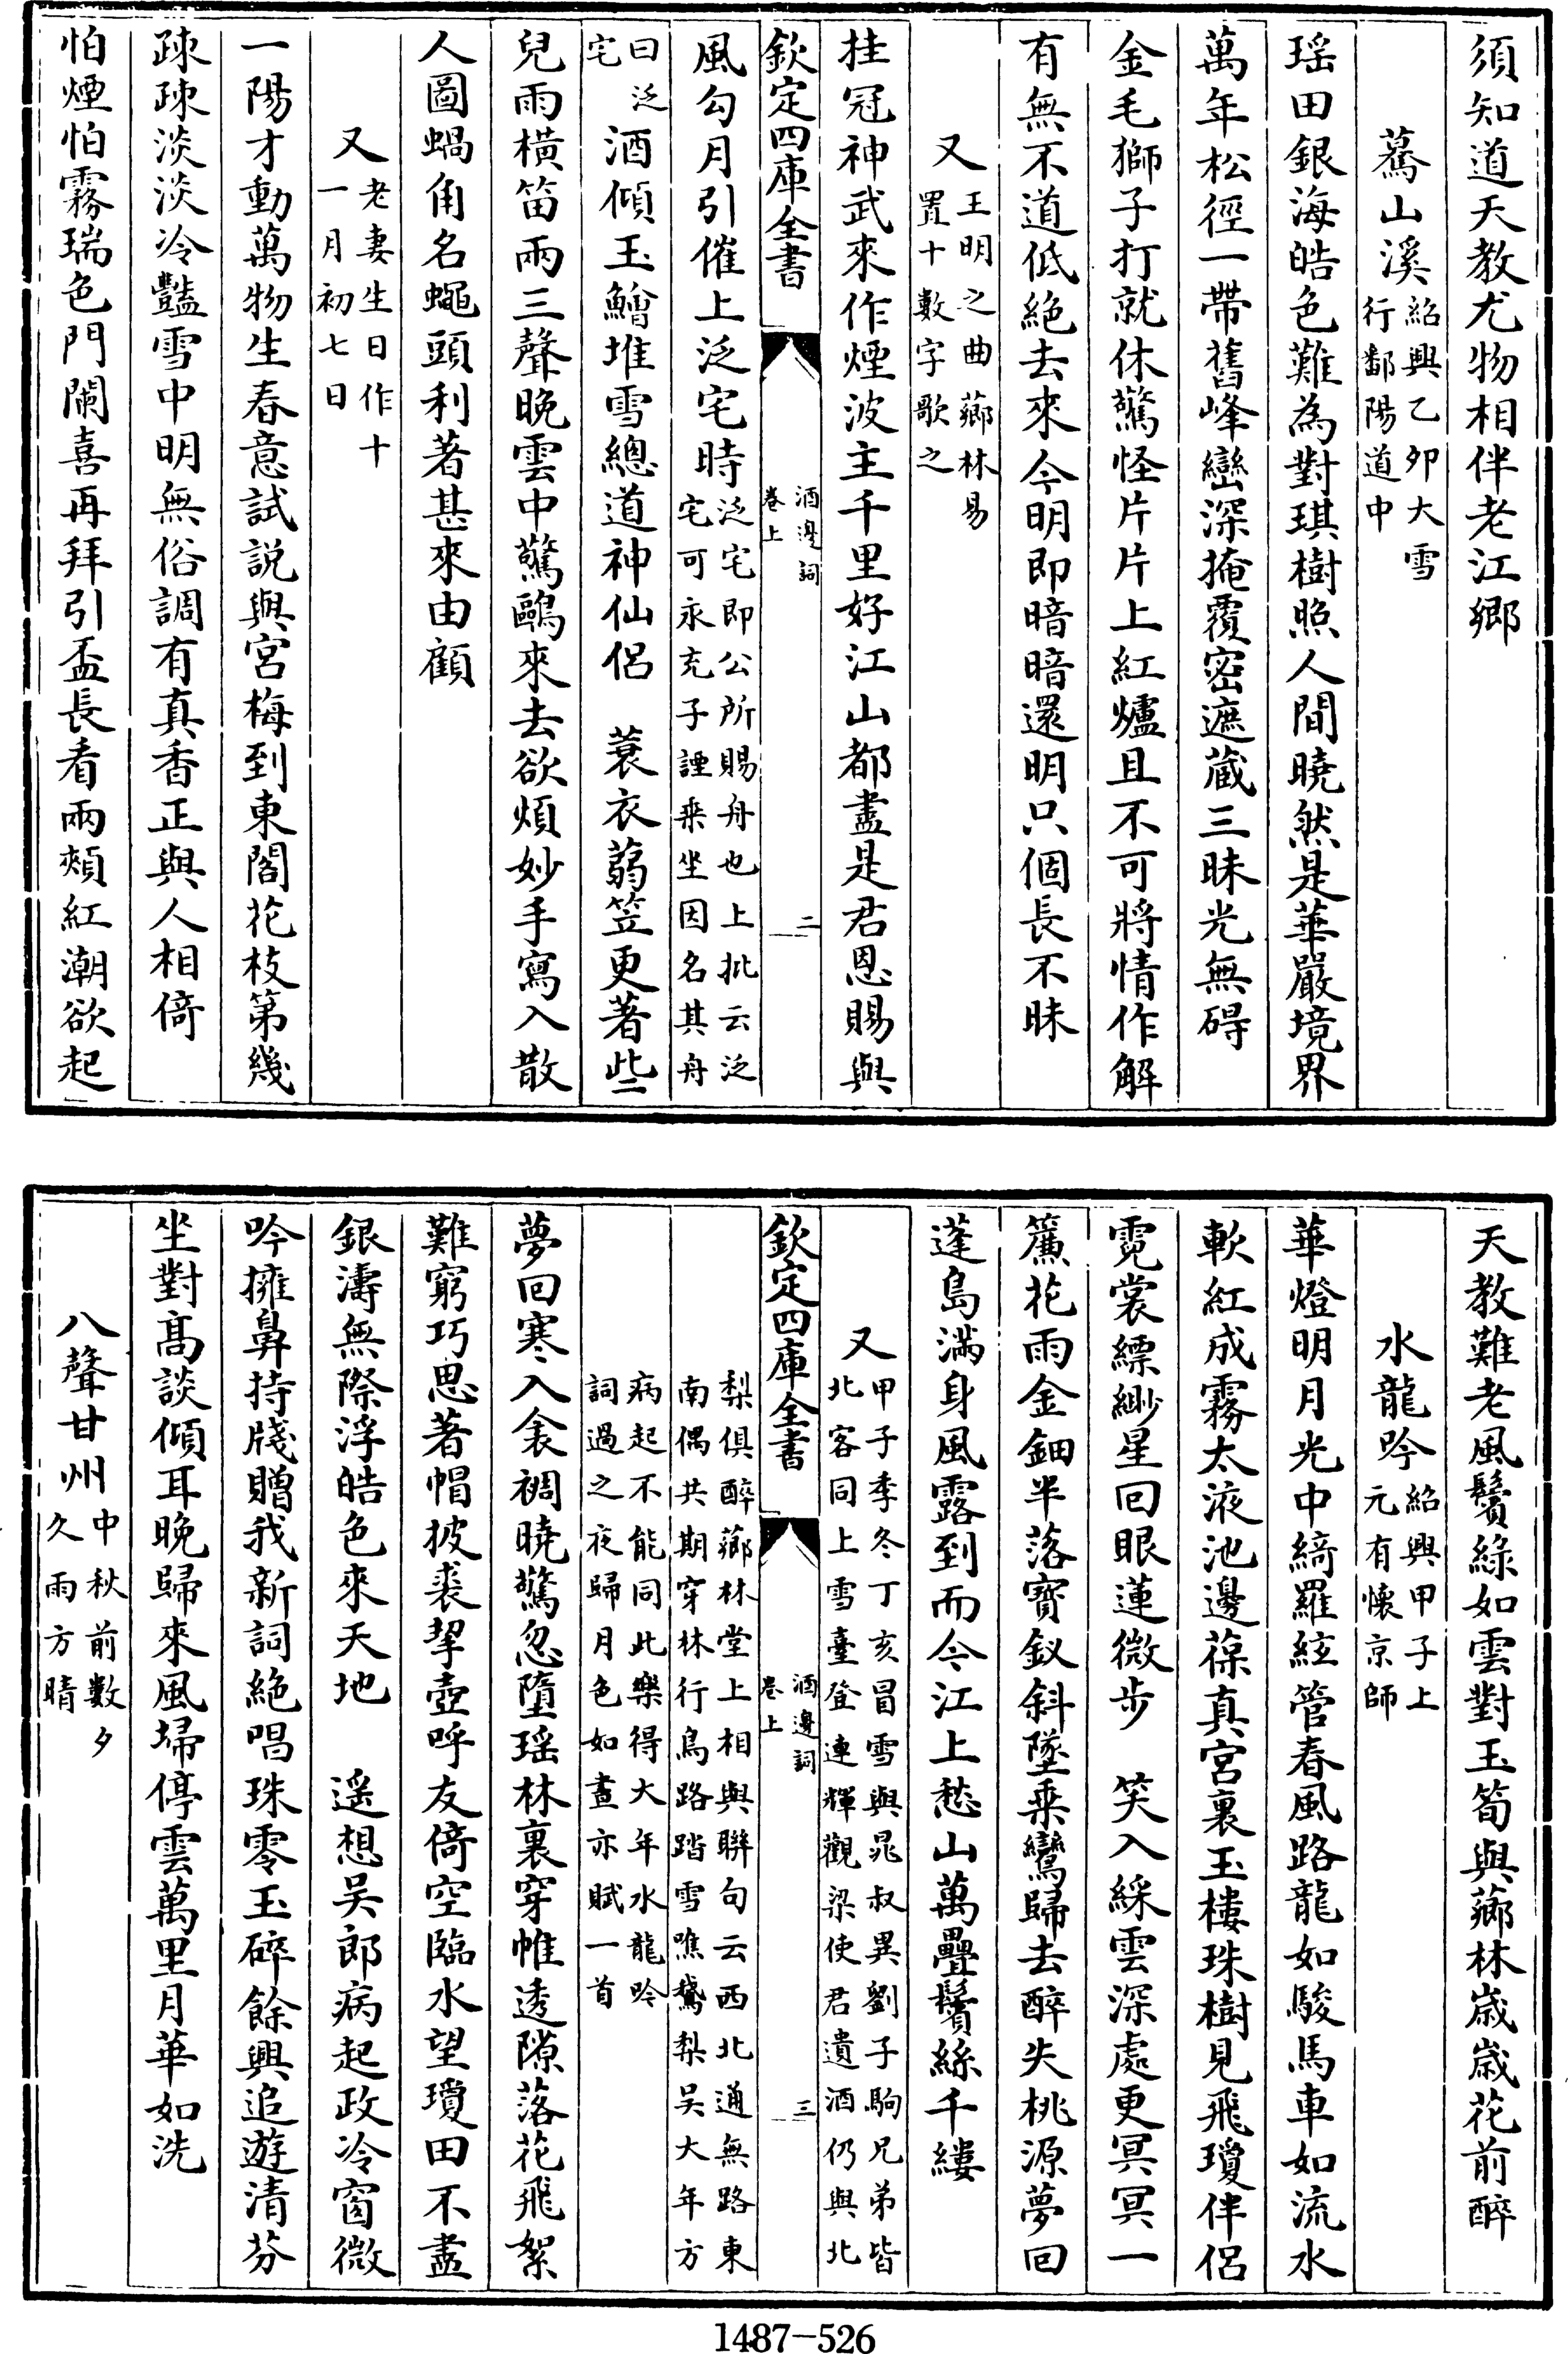 須知道天教尤物相伴老江鄉
驀山溪紹興乙夘大雪行鄱陽道中
瑶田銀海皓色難為對琪樹照人間曉然是華嚴境界
萬年松徑一帶舊峰巒深掩覆密遮藏三昧光無碍
金毛獅子打就休驚怪片片上紅爐且不可將情作解
有無不道低絶去來今明即暗暗還明只個長不昧
又王明之曲薌林易置十數字歌之
挂冠神武來作煙波主千里好江山都盡是君恩賜與
欽定四庫全書 酒邊詞卷上 二
風勾月引催上泛宅時泛宅即公所賜舟也上批云泛宅可永充子諲乗坐因名其舟
曰泛宅酒傾玉鱠堆雪總道神仙侶 蓑衣蒻笠更著些
兒雨橫笛兩三聲晩雲中驚鷗來去欲煩妙手寫入散
人圖蝸角名蠅頭利著甚來由顧
又老妻生日作十一月初七日
一陽才動萬物生春意試説與宮梅到東閣花枝第幾
疎疎淡淡冷豔雪中明無俗調有真香正與人相倚
怕煙怕霧瑞色門闌喜再拜引盃長看兩頰紅潮欲起
天教難老風鬢綠如雲對玉筍與薌林歳歳花前醉
水龍吟紹興甲子上元有懷京師
華燈明月光中綺羅絃管春風路龍如駿馬車如流水
軟紅成霧太液池邊葆真宮裏玉樓珠樹見飛瓊伴侶
霓裳縹緲星回眼蓮微步 笑入綵雲深處更冥冥一
簾花雨金鈿半落寶釵斜墜乗鸞歸去醉失桃源夢回
蓬島滿身風露到而今江上愁山萬疊鬢絲千縷
又甲子季冬丁亥冒雪與晁叔異劉子駒兄弟皆北客同上雪臺登連輝觀梁使君遺酒仍與北
欽定四庫全書 酒邊詞卷上 三
梨俱醉薌林堂上相與聯句云西北通無路東南偶共期穿林行鳥路踏雪噍鵞梨吴大年方
病起不能同此樂得大年水龍吟詞過之夜歸月色如晝亦賦一首
夢回寒入衾裯曉驚忽墮瑶林裏穿帷透隙落花飛絮
難窮巧思著帽披裘挈壺呼友倚空臨水望瓊田不盡
銀濤無際浮皓色來天地 遥想吴郎病起政冷窗微
吟擁鼻持牋贈我新詞絶唱珠零玉碎餘興追遊清芬
坐對髙談傾耳晩歸來風埽停雲萬里月華如洗
八聲甘州中秋前數夕久雨方晴
1487-526